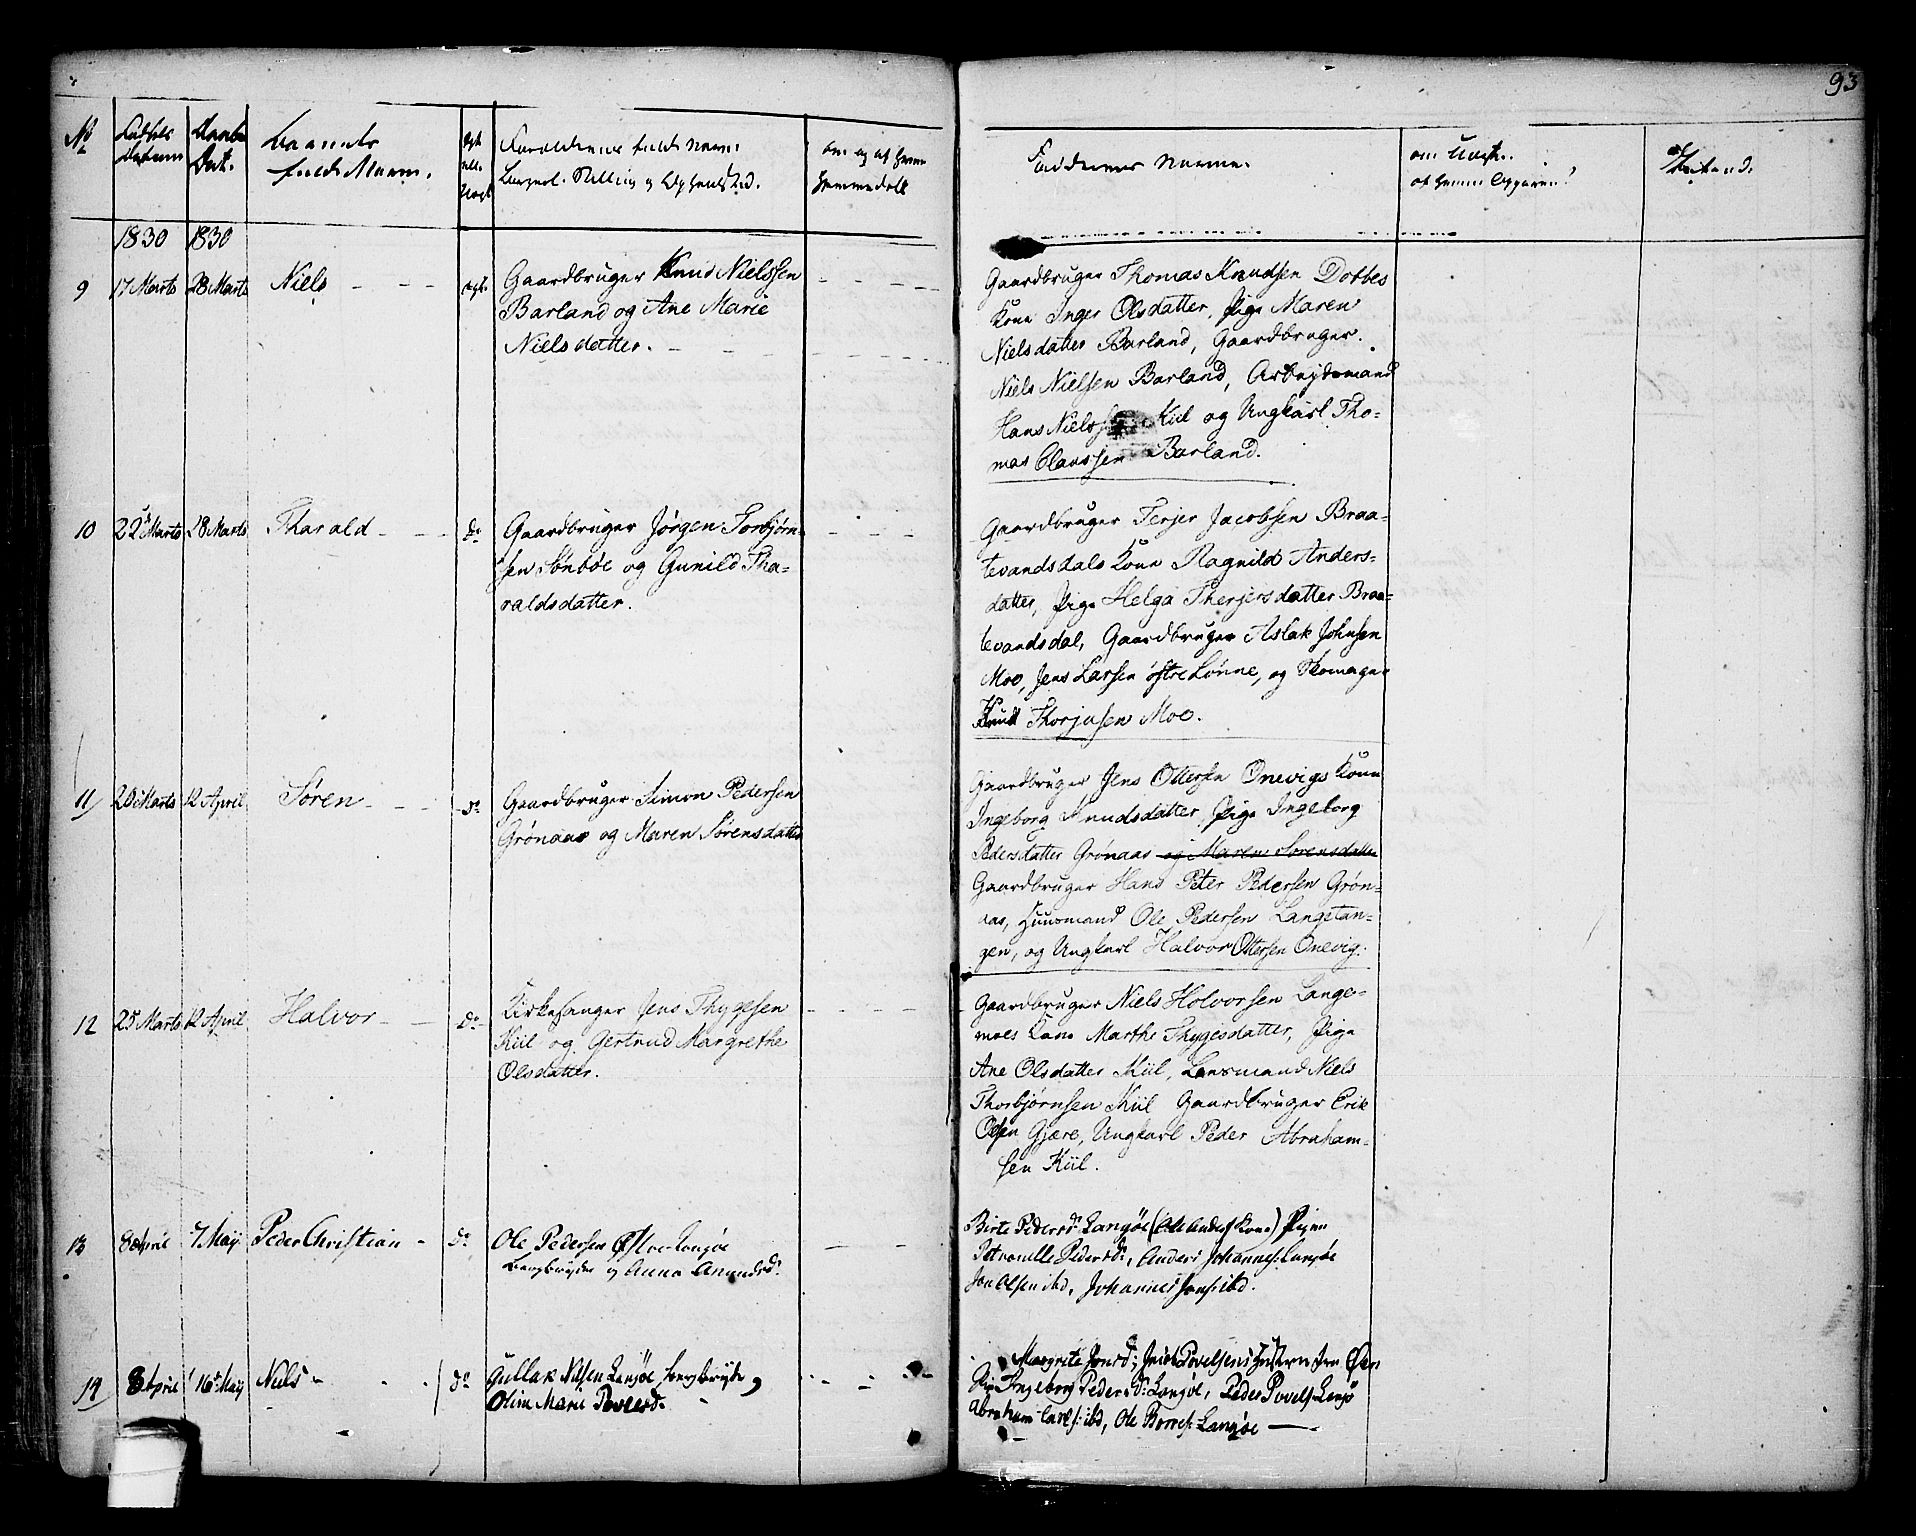 93
No
Fødsels Datum
Daabs Dat.
Barnets fulde Navn.
Forældrenes fulde Navn,
Faddernes Navne.
1830 1830
9 17 Marts 28 Marts Niels
Gaardbruger Knud Nielssen
Barland og Ane Marie
Nielsdatter.
Gaardbruger Thomas Knudsen Dobbes
Kone Inger Olsdatter, Pige Maren
Nielsdatter Barland, Gaardbruger
Niels Nielsen Barland, Arbeidsmand
Hans Nielssen Kiil og Ungkarl Tho-
mas Clanssen Barland.
10 22 Marts 28 Marts Tharald Do
Gaardbruger Jørgen Torbjørn-
sen Sønbøe og Gunild Tha-
raldsdatter.
Gaardbruger Terjer Jacobsen Braa-
tevandsdals Kone Ragnild Anders-
datter, Pige Helga Therjersdatter Braa-
tevandsdal, Gaardbruger Aslak Johnsen
Moe, Jens Larsen østre Lønne, og Skomager
Knud Thorjusen Moe.
11 Marts 12 April Søren Do
Gaardbruger Simon Pedersen
Grønaas og Maren Sørensdatter
Gaardbruger Jens Ottersen Onevigs Kone
Ingeborg Knudsdatter, Pige Ingeborg
Pedersdatter Grønaas og Maren Sørensdatter
Gaardbruger Hans Peter Pedersen Grøn-
aas, Huusmand Ole Pedersen Langetan-
gen, og Ungkarl Halvor Ottersen Onevig.
12 25 Marts 12 April Halvor Do
Kirkesanger Jens Thygesen
Kiil og Gertrud Margrethe
Olsdatter.
Gaardbruger Niels Holvorsen Lange-
moes Kone Marthe Thygesdatter, Pige
Ane Olsdatter Kiil, Lensmand Niels
Thorbjørnsen Kiil Gaardbruger Erik
Olsen Gjære, Ungkarl Peder Abraham-
sen Kiil.
13 8 April 7 Maij Peder Christian Do
Ole Pedersen Østre Langøe
og Anna
Birte Pedersd. Langøe (Ole Anders Kone) Pigen
Petronelle Pedersd., Anders Johannes. Langøe
Jon Olsen ibd, Johannes Jons. ibd.
14 8 April 16 Maij Niels Do
Gullak Nilsen Langøe
Oline Marie Povelsd.
Margrete Jonsd.
Pige Ingeborg Pedersd. Langøe, Peder Povels. Langø
Abraham Carls. ibd, Ole Langøe